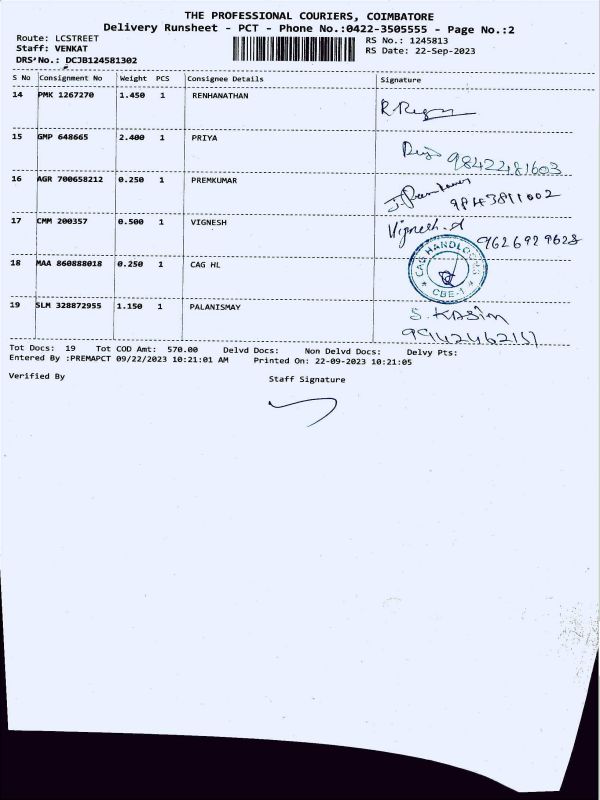 THE PROFESSIONAL COURIERS, COIMBATORE
Delivery Runsheet - PCT - Phone No.:0422-3505555 - Page No.:2
Route: LCSTREET RS No.: 1245813
Staff: VENKAT RS Date: 22-Sep-2023
DRS No.: DCJB124581302
S No Consignment No Weight PCS Consignee Details Signature
14 PMK 1267270 1.450 1 RENHANATHAN
15 GMP 648665 2.400 1 PRIYA 9842281603
16 AGR 700658212 0.250 1 PREMKUMAR 9843811002
17 CMM 200357 0.500 1 VIGNESH Vignesh.A 9626929628
18 MAA 860888018 0.250 1 CAG HL CAG HANDLOOMS * CBE-1 *
19 SLM 328872955 1.150 1 PALANISMAY S. KASIM
9942462157
Tot Docs: 19 Tot COD Amt: 570.00 Delvd Docs: Non Delvd Docs: Delvy Pts:
Entered By :PREMAPCT 09/22/2023 10:21:01 AM Printed On: 22-09-2023 10:21:05
Verified By Staff Signature